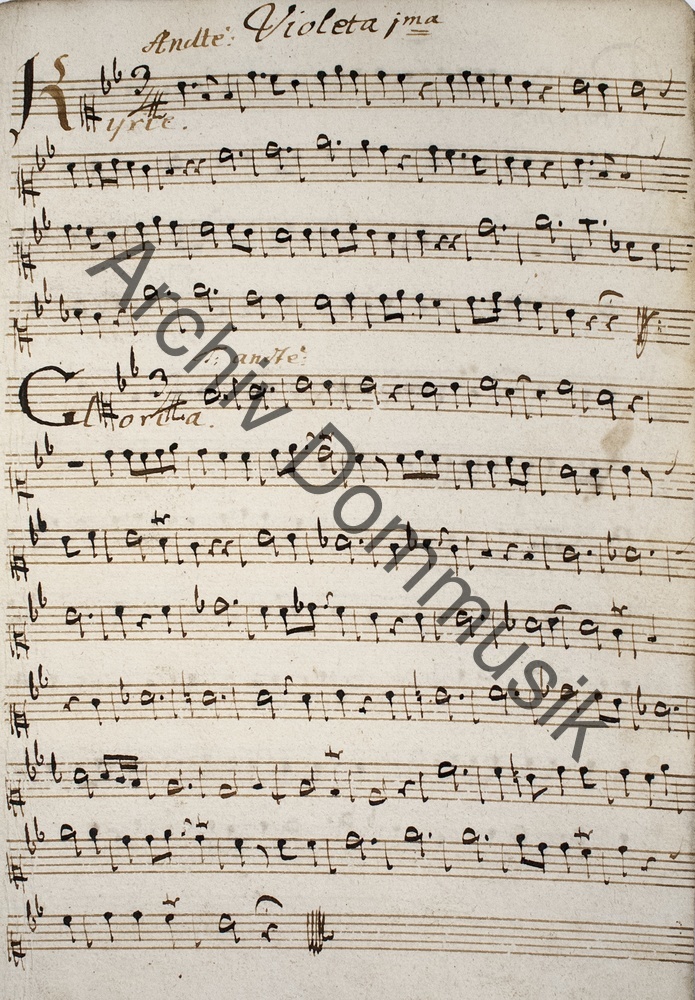 Violeta jma
Andte:
Kyrie.
andte:
Gloria.
Archiv Dommusik